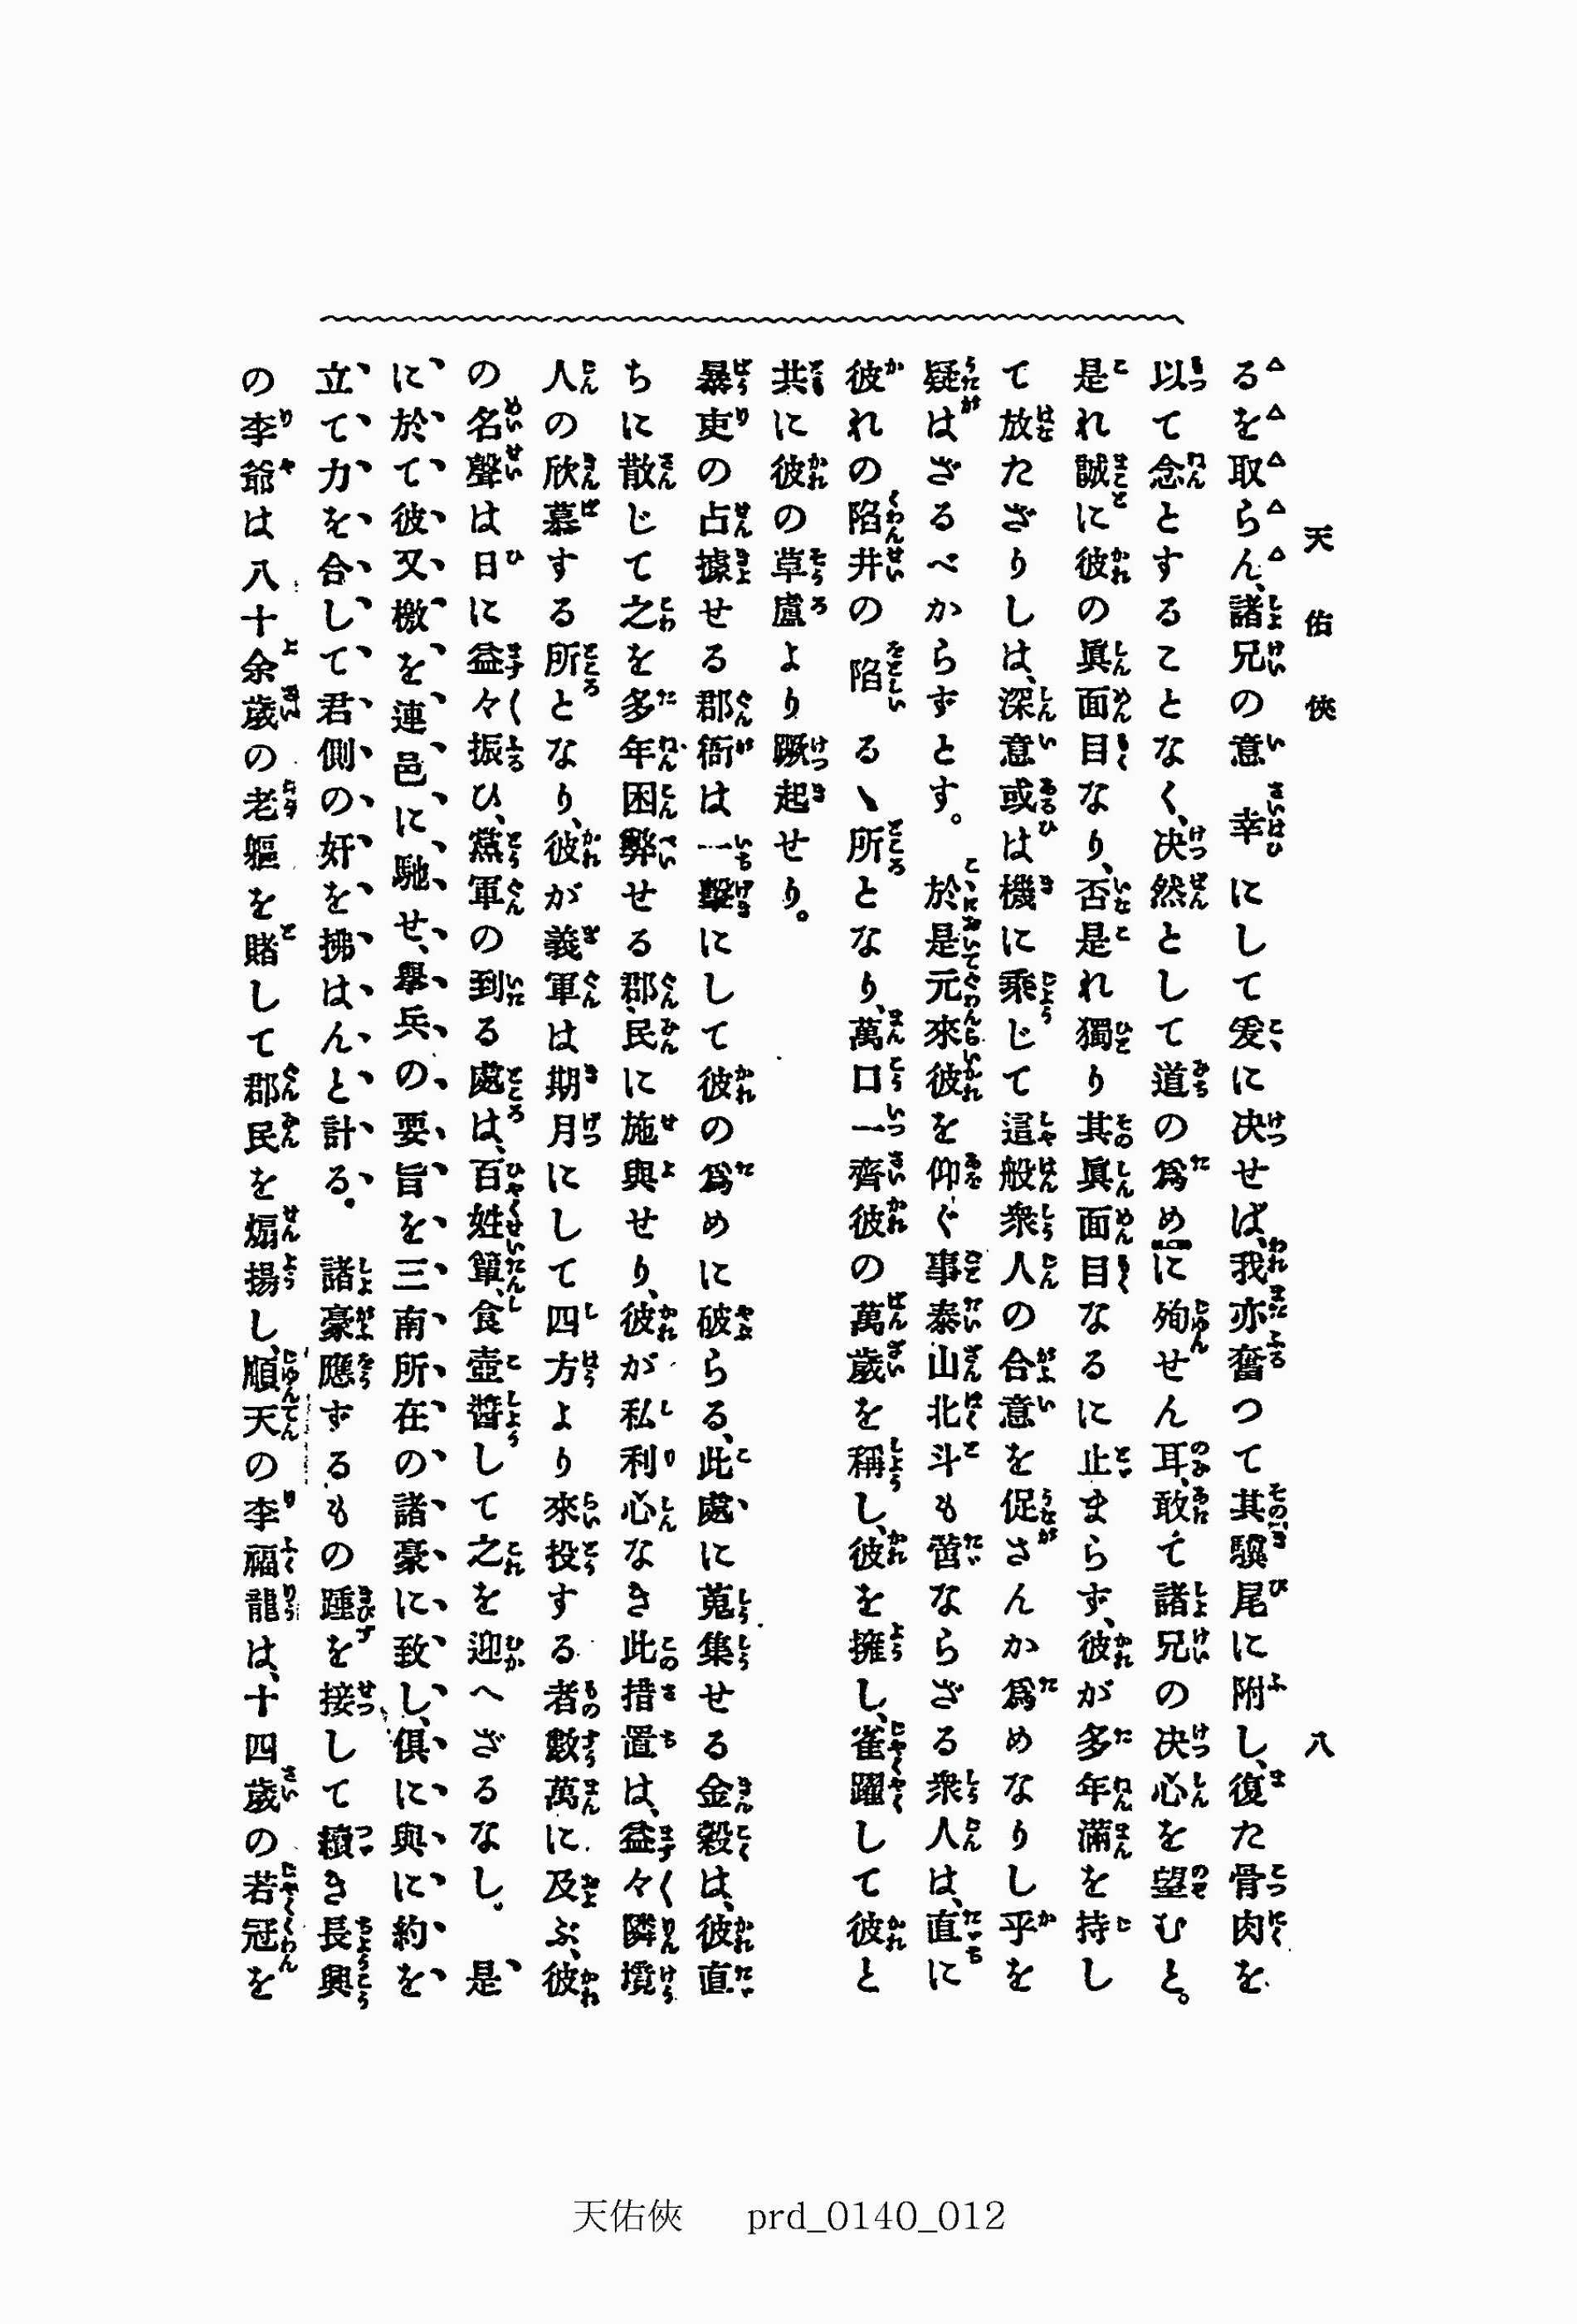 天佑俠　八
るを取らん、諸兄の意幸にして爰に决せば、我亦奮つて其驥尾に附し、復た骨肉を
以て念とすることなく、决然として道の爲めに殉せん耳、敢て諸兄の决心を望むと。
是れ誠に彼の眞面目なり、否是れ獨り其眞面目なるに止まらず、彼が多年滿を持し
て放たざりしは、深意或は機に乘じて這般衆人の合意を促さんか爲めなりし乎を
疑はざるべからずとす。於是元來彼を仰ぐ事泰山北斗も啻ならざる衆人は、直に
彼れの陷井の陷る丶所となり、萬口一齊彼の萬歲を稱し、彼を擁し、雀躍して彼と
共に彼の草廬より蹶起せり。
暴吏の占據せる郡衙は一擊にして彼の爲めに破らる、此處に蒐集せる金穀は、彼直
ちに散じて之を多年困弊せる郡民に施與せり、彼が私利心なき此措置は、益々隣境
人の欣慕する所となり、彼が義軍は期月にして四方より來投する者數萬に及ぶ、彼
の名聲は日に益々振ひ、黨軍の到る處は、百姓簞食壺醬して之を迎へざるなし。是
に於て彼又檄を連邑に馳せ、擧兵の要旨を三南所在の諸豪に致し、俱に與に約を
立て力を合して君側の奸を拂はんと計る。諸豪應ずるもの踵を接して續き長興
の李爺は八十余歲の老軀を賭して郡民を煽揚し、順天の李福龍は、十四歲の若冠を
天佑俠　prd_0140_012